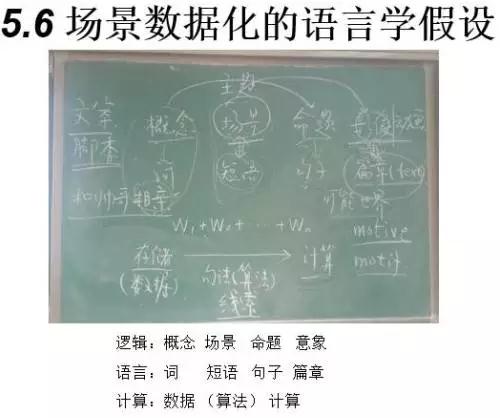 5.6 场景数据化的语言学假设
主题
文学 概念 场景 命题 意象
脚香 词 短语 句子 篇章(text)
相亲 可能世界
W₁+W₂+……+Wₙ motive
存储 → 计算 motif
(数据) 句法(算法)
线索
逻辑：概念 场景 命题 意象
语言：词 短语 句子 篇章
计算：数据 （算法） 计算